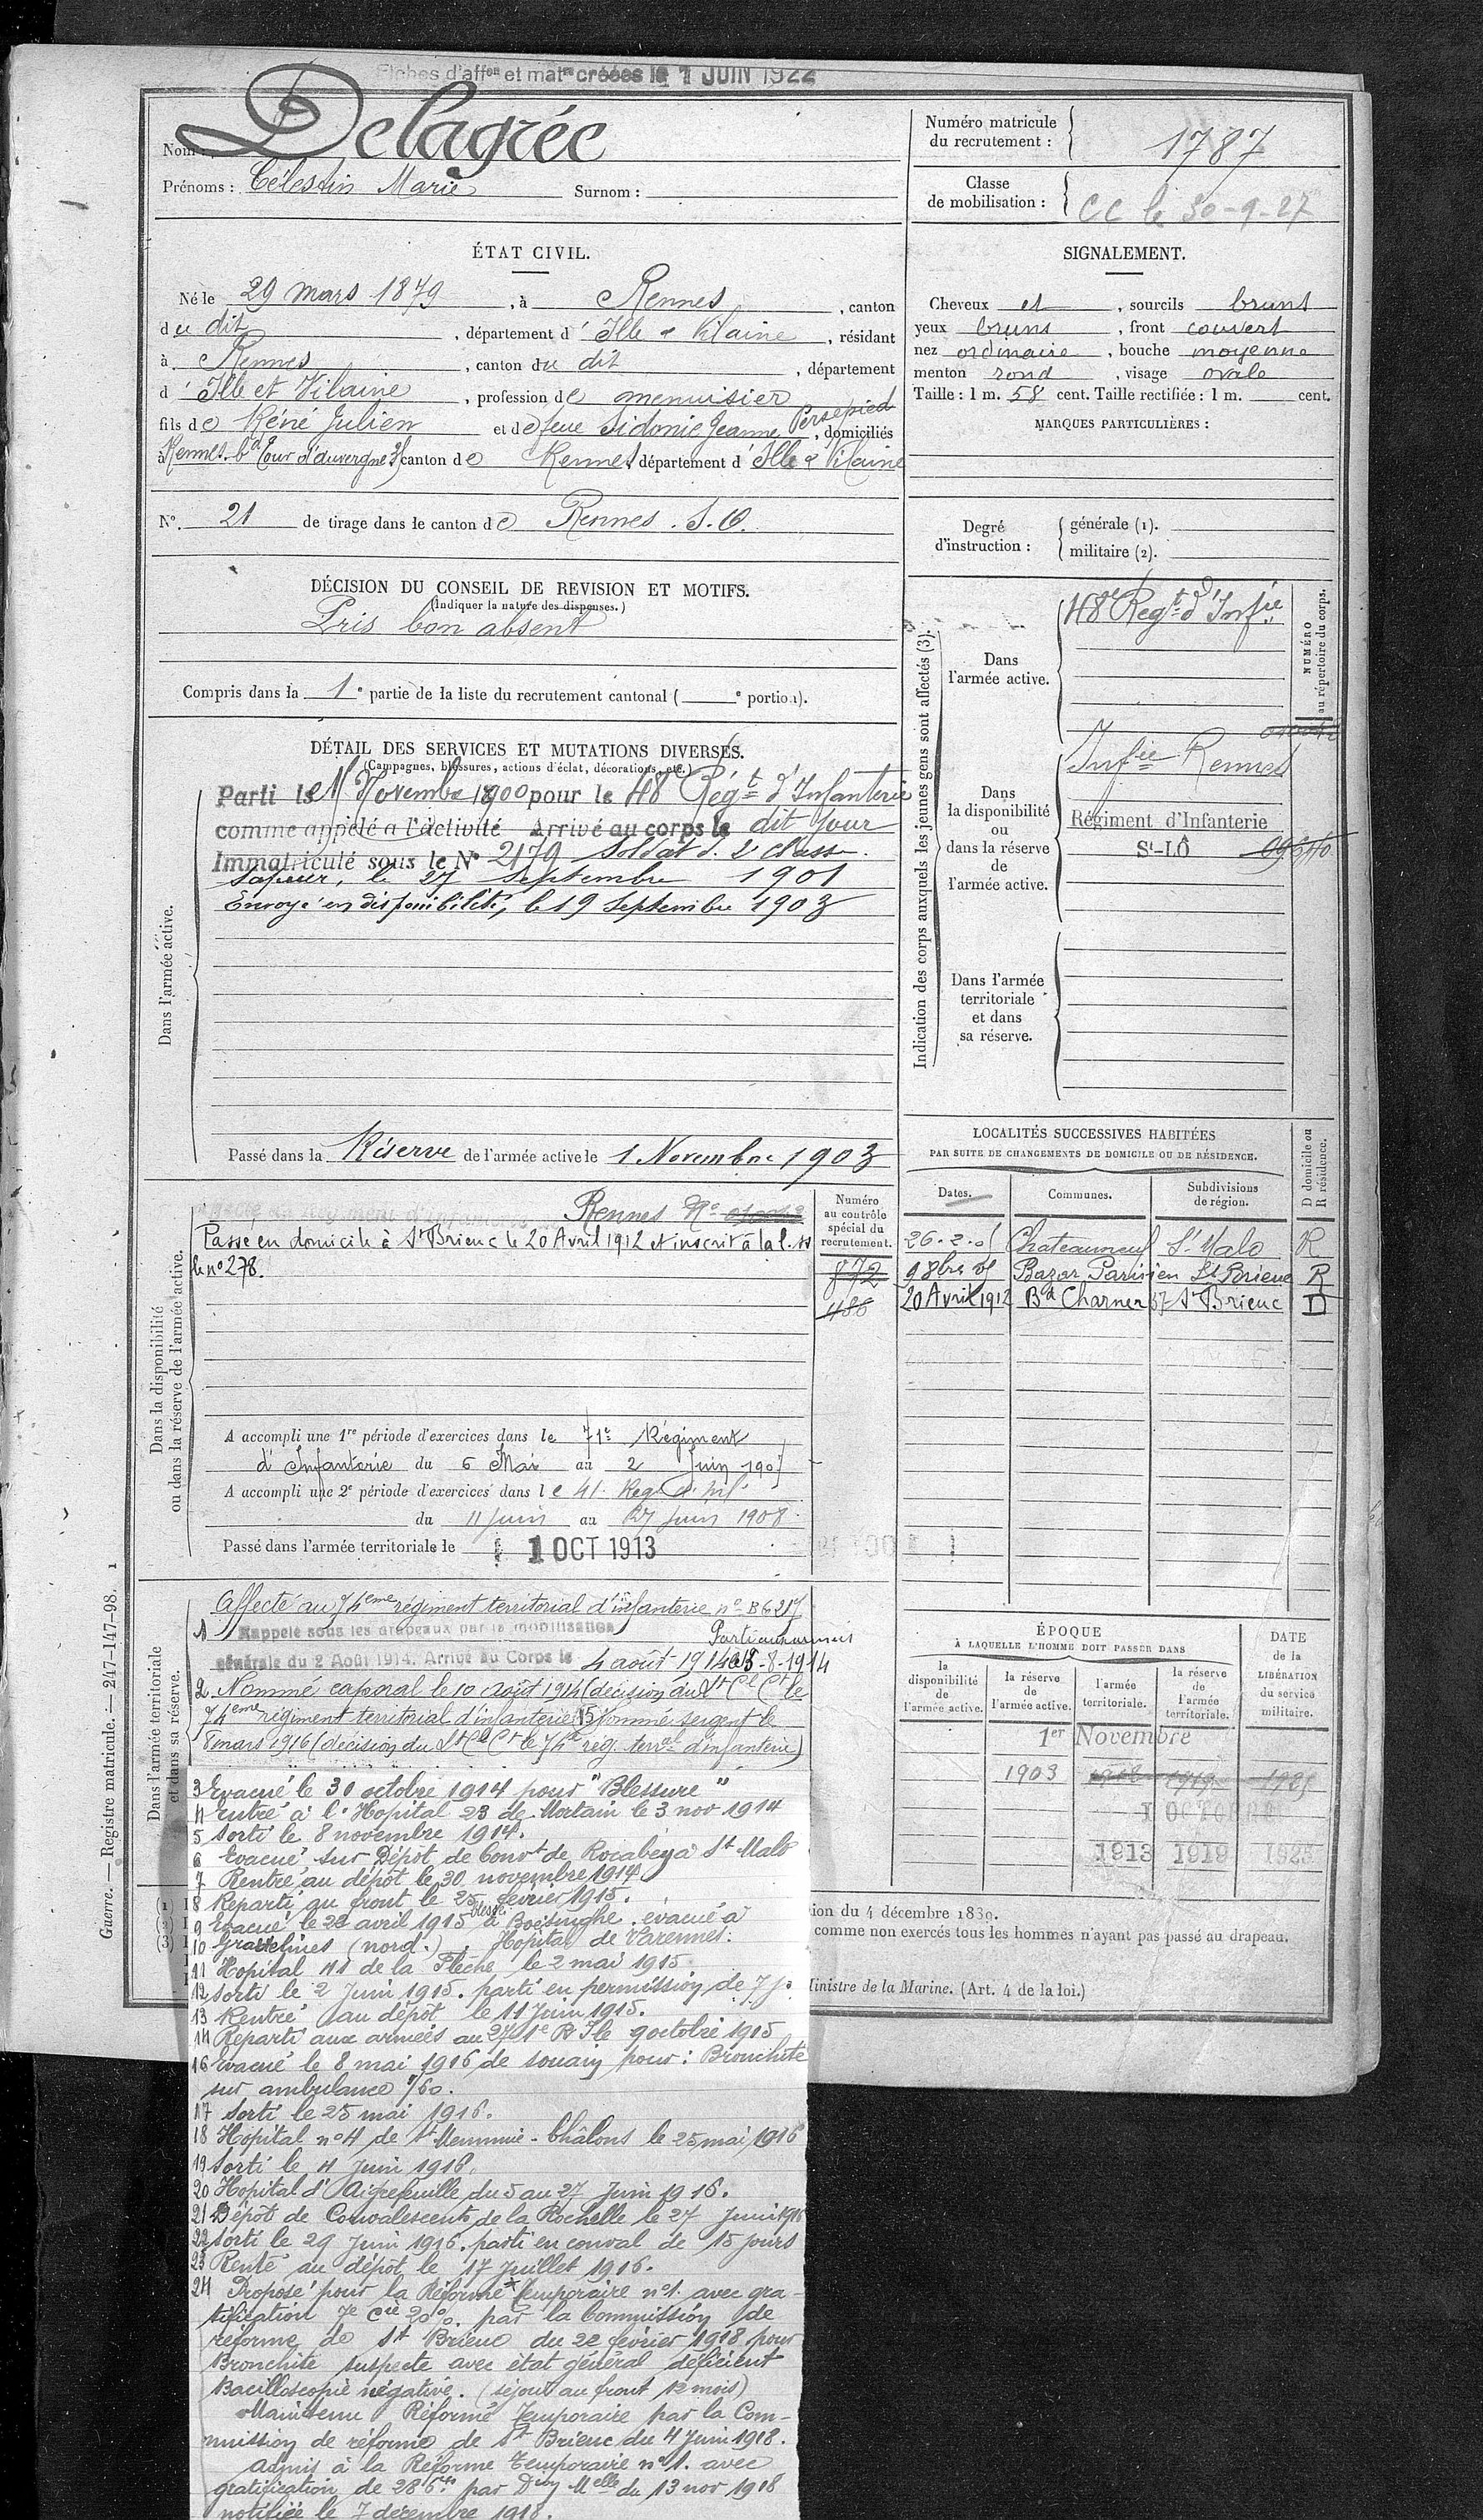 Fiches d'aff<sup>on</sup> et mat<sup>re</sup> créées le 1 JUIN 1922
Nom : Delagrée
Prénoms : Célestin Marie Surnom :
Numéro matricule du recrutement : 1787
Classe de mobilisation : CC le 30-9-27
ÉTAT CIVIL.
Né le 29 mars 1879, à Rennes, canton
du dit, département d'Ille & Vilaine, résidant
à Rennes, canton du dit, département
d'Ille et Vilaine, profession de menuisier
fils de Réné Julien et de feue Sidonie Jeanne Persepied, domiciliés
à Rennes. b<sup>d</sup> Tour d'auvergne canton de Rennes, département d'Ille & Vilaine
N°. 21 de tirage dans le canton de Rennes. S.O.
SIGNALEMENT.
Cheveux et, sourcils bruns
yeux bruns, front couvert
nez ordinaire, bouche moyenne
menton rond, visage ovale
Taille : 1 m. 58 cent. Taille rectifiée : 1 m. cent.
MARQUES PARTICULIÈRES :
Degré d'instruction : générale (1).
militaire (2).
DÉCISION DU CONSEIL DE REVISION ET MOTIFS.
(Indiquer la nature des dispenses.)
Pris bon absent
Compris dans la 1e partie de la liste du recrutement cantonal ( e portion).
DÉTAIL DES SERVICES ET MUTATIONS DIVERSES.
(Campagnes, blessures, actions d'éclat, décorations, etc.)
Dans l'armée active.
Parti le Novembre 1900 pour le 48 Rég<sup>t</sup> d'Infanterie
comme appelé a l'activité Arrivé au corps le dit jour
Immatriculé sous le N° 2179 Soldat d. 2e classe.
Sapeur, le 27 Septembre 1901
Envoyé en disponibilité, le 19 Septembre 1903
Passé dans la Réserve de l'armée active le 1 Novembre 1903
Indication des corps auxquels les jeunes gens sont affectés (3).
NUMÉRO au répertoire du corps.
Dans l'armée active.
48e Reg<sup>t</sup> d'Inf<sup>ie</sup>
Dans la disponibilité ou dans la réserve de l'armée active.
Inf<sup>ie</sup> Rennes
Régiment d'Infanterie
S<sup>t</sup>-LÔ
Dans l'armée territoriale et dans sa réserve.
LOCALITÉS SUCCESSIVES HABITÉES
PAR SUITE DE CHANGEMENTS DE DOMICILE OU DE RÉSIDENCE.
Dates. Communes. Subdivisions de région. D domicile ou R résidence.
26.2.01 Chateauneuf S<sup>t</sup> Malo R
9 8bre Bazar Parisien S<sup>t</sup> Brieuc R
20 Avril 1912 B<sup>d</sup> Charner 57 S<sup>t</sup> Brieuc D
Dans la disponibilité ou dans la réserve de l'armée active.
Numéro au contrôle spécial du recrutement.
Rennes N°
Passé en domicile à S<sup>t</sup> Brieuc le 20 Avril 1912 et inscrit à la l. ss
le n° 278.
872
488
A accompli une 1re période d'exercices dans le 71e Régiment
d'Infanterie du 6 Mai au 2 Juin 190
A accompli une 2e période d'exercices dans le 41. Reg. d'inf.
du 11 Juin au 27 Juin 1908
Passé dans l'armée territoriale le 1 OCT 1913
Dans l'armée territoriale et dans sa réserve.
Affecté au 74eme régiment territorial d'infanterie n° B6217
1 Rappelé sous les drapeaux par la mobilisation
générale du 2 Août 1914. Arrivé au Corps le 4 août 1914 Parti aux armées 8-1914
2 Nommé caporal le 10 août 1914 (décision du Lt Cl Ct le
74eme régiment territorial d'infanterie) 15 Nommé sergent le
8 mars 1916 (décision du Lt Cl Ct le 74e rég. terral d'infanterie)
3 Evacué le 30 octobre 1914 pour "Blessure"
4 Entré à l'Hopital 23 de Mortain le 3 nov 1914
5 Sorti le 8 novembre 1914.
6 Evacué sur Dépôt de Convt de Rocabey à St Malo
7 Rentré au dépôt le 30 novembre 1914
8 Reparti au front le 25 février 1915.
9 Evacué le 22 avril 1915 blessé à Boesinghe. évacué à
10 Gravelines (nord.) Hopital de Varennes.
11 Hopital 41 de la Flèche le 2 mai 1915.
12 Sorti le 2 Juin 1915. parti en permission de 7 j.
13 Rentré au dépôt le 11 Juin 1915.
14 Reparti aux armées au 271e R I le 9 octobre 1915
16 Evacué le 8 mai 1916 de Souain pour : Bronchite
sur ambulance /60.
17 Sorti le 25 mai 1916.
18 Hopital n° 4 de St Memmie - Châlons le 25 mai 1916
19 Sorti le 4 Juin 1916.
20 Hopital d'Aigrefeuille du 5 au 27 Juin 1916.
21 Dépôt de Convalescents de la Rochelle le 27 Juin 1916
22 Sorti le 29 Juin 1916. parti en conval de 15 jours
23 Rentré au dépôt le 17 Juillet 1916.
24 Proposé pour la Réforme Temporaire n° 1. avec gra-
tification 7e cie 20 %. par la Commission de
réforme de St Brieuc du 22 février 1918 pour
Bronchite suspecte avec état général déficient
Bacilloscopie négative. (séjour au front 12 mois)
Maintenu Réformé Temporaire par la Com-
mission de réforme de St Brieuc du 4 Juin 1918.
Admis à la Réforme temporaire n° 1. avec
gratification de 286 frs par Don Mlle du 13 nov 1918
notifiée le 7 décembre 1918.
ÉPOQUE
À LAQUELLE L'HOMME DOIT PASSER DANS
la disponibilité de l'armée active.
la réserve de l'armée active.
l'armée territoriale.
la réserve de l'armée territoriale.
DATE de la LIBÉRATION du service militaire.
1er Novembre
1903
1 OCTOBRE
1913 1919 1923
ion du 4 décembre 1889.
comme non exercés tous les hommes n'ayant pas passé au drapeau.
Ministre de la Marine. (Art. 4 de la loi.)
Guerre. — Registre matricule. — 247-147-98. 1